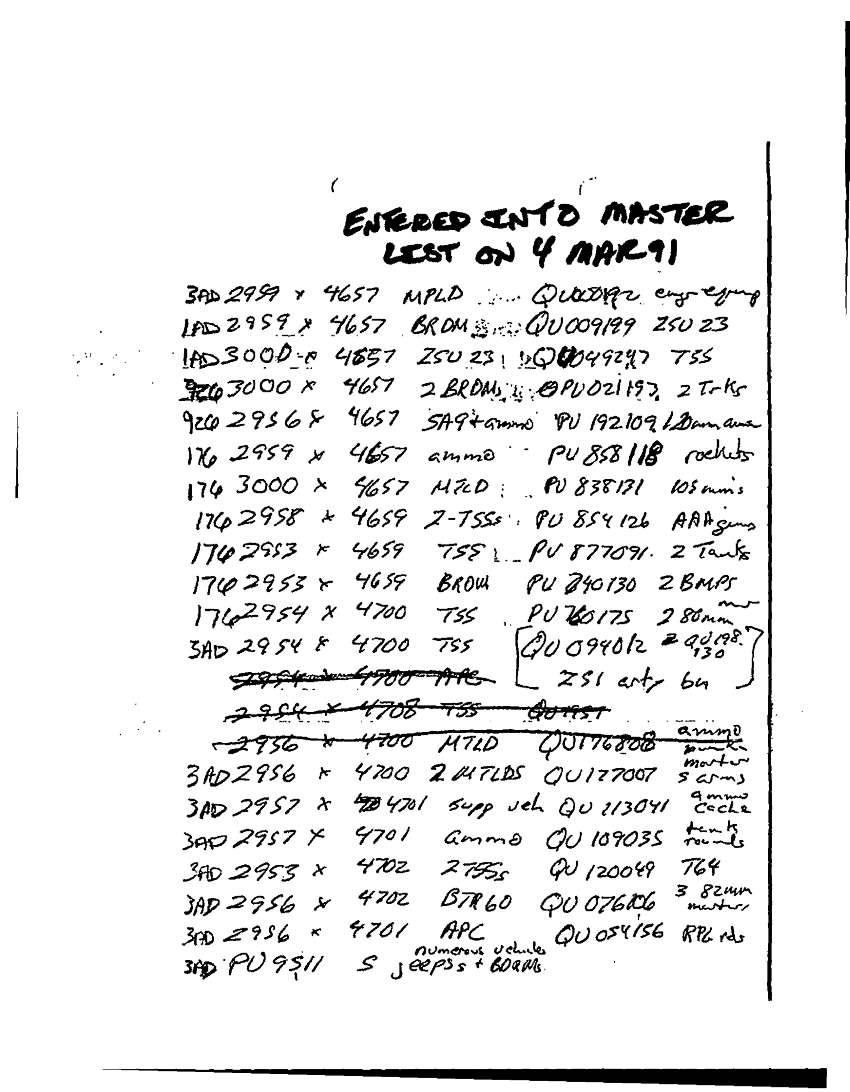 ENTERED INTO MASTER
LIST ON 4 MAR 91
3AD 2959 x 4657 MPLD engr equip
1AD 2959 x 4657 BRDM QU009199 ZSU 23
1AD 3000 4657 ZSU 23 T55
926 3000 x 4657 2 BRDMs PU021193 2 Trks
926 2956 x 4657 SA9 + ammo PU 192109
176 2959 x 4657 ammo PU 858118 rockets
176 3000 x 4657 MTLD PU 838131 105 mm's
176 2958 x 4659 2-T55s PU 854126 AAA guns
176 2953 x 4659 T55 PU 877091 2 Tanks
176 2953 x 4659 BRDM PU 840130 2 BMPS
176 2954 x 4700 T55 PU 760175 2 80mm
3AD 2954 x 4700 T55 [QU 094012 2 QU198130
2954 4700 APC 251 arty bn]
2954 x 4708 T55
2956 x 4700 MTLD QU176808 ammo
3AD 2956 x 4700 2 MTLDS QU177007 mortar s arms
3AD 2957 x 4701 supp veh QU 113041 ammo cache
3AD 2957 x 4701 ammo QU 109035 tank rounds
3AD 2953 x 4702 2 T55s QU 120049 T64
3AD 2956 x 4702 BTR60 QU 076106 3 82mm mortars
3AD 2956 x 4701 APC QU 054156 RPG rds
3AD PU 9511 5 jeeps + BDRMs numerous vehicles